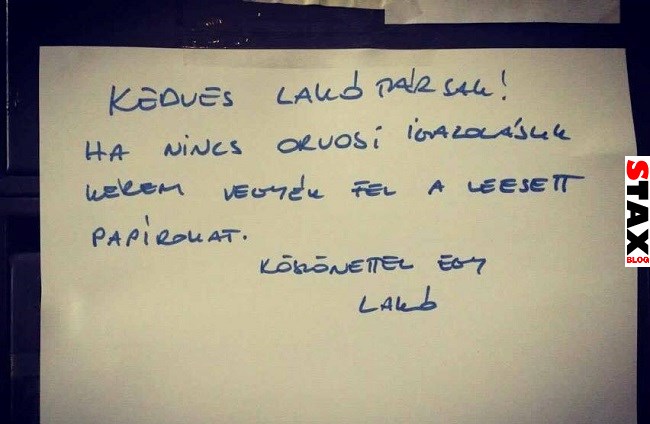 KEDVES LAKÓTÁRSAK!
HA NINCS ORVOSI IGAZOLÁSUK
KÉREM VEGYÉK FEL A LEESETT
PAPÍROKAT.
KÖSZÖNETTEL EGY
LAKÓ
STAX
BLOG